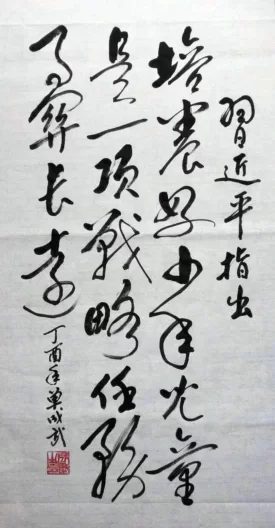 習近平指出
培養好少年儿童
是一项戰略任務
事關長遠
丁酉年